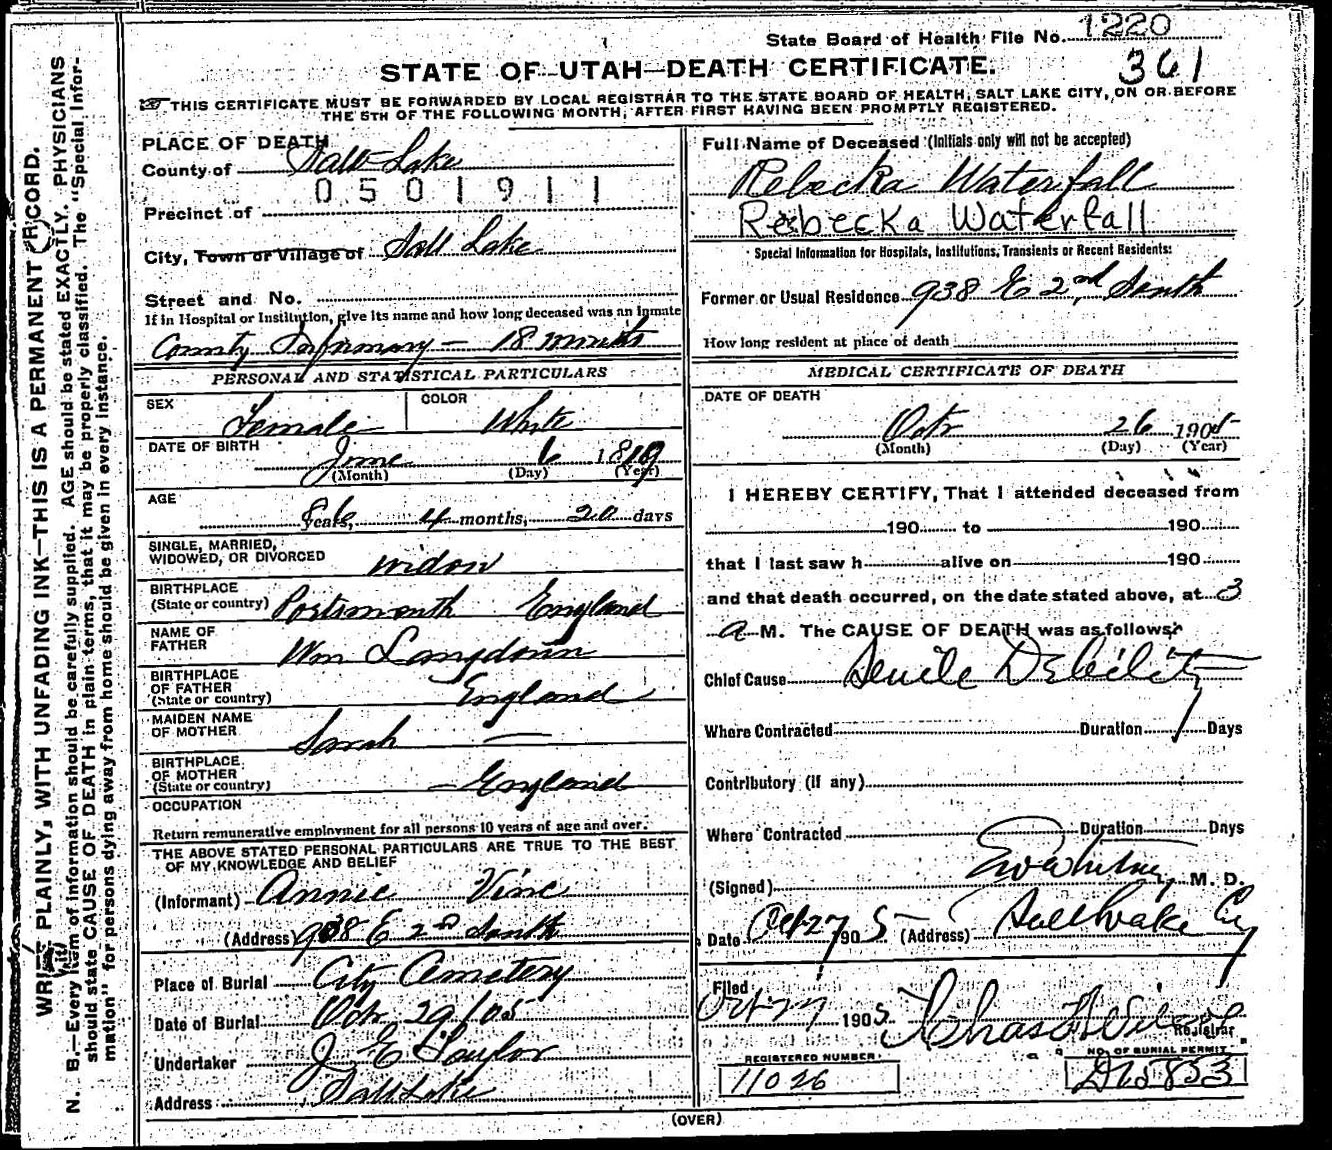 State Board of Health File No. 1220
361
STATE OF UTAH—DEATH CERTIFICATE.
THIS CERTIFICATE MUST BE FORWARDED BY LOCAL REGISTRAR TO THE STATE BOARD OF HEALTH, SALT LAKE CITY, ON OR BEFORE
THE 5TH OF THE FOLLOWING MONTH, AFTER FIRST HAVING BEEN PROMPTLY REGISTERED.
WRITE PLAINLY, WITH UNFADING INK—THIS IS A PERMANENT RECORD.
N. B.—Every item of information should be carefully supplied. AGE should be stated EXACTLY. PHYSICIANS
should state CAUSE OF DEATH in plain terms, that it may be properly classified. The "Special Infor-
mation" for persons dying away from home should be given in every instance.
PLACE OF DEATH
County of Salt Lake
0501911
Precinct of
City, Town or Village of Salt Lake
Street and No.
If in Hospital or Institution, give its name and how long deceased was an inmate
County Infirmary — 18 months
PERSONAL AND STATISTICAL PARTICULARS
SEX Female
COLOR White
DATE OF BIRTH June 6 1819
(Month) (Day) (Year)
AGE
86 years, 4 months, 20 days
SINGLE, MARRIED,
WIDOWED, OR DIVORCED widow
BIRTHPLACE
(State or country) Portsmouth England
NAME OF
FATHER Wm Langdown
BIRTHPLACE
OF FATHER
(State or country) England
MAIDEN NAME
OF MOTHER Sarah —
BIRTHPLACE
OF MOTHER
(State or country) — England
OCCUPATION
Return remunerative employment for all persons 10 years of age and over.
THE ABOVE STATED PERSONAL PARTICULARS ARE TRUE TO THE BEST
OF MY KNOWLEDGE AND BELIEF
(Informant) Annie Vine
(Address) 938 E 2nd South
Place of Burial City Cemetery
Date of Burial Octr 29/05
Undertaker J E Taylor
Address Salt Lake
Full Name of Deceased (Initials only will not be accepted)
Rebecka Waterfall
Rebecka Waterfall
Special Information for Hospitals, Institutions, Transients or Recent Residents:
Former or Usual Residence 938 E 2nd South
How long resident at place of death
MEDICAL CERTIFICATE OF DEATH
DATE OF DEATH
Octr 26 1905
(Month) (Day) (Year)
I HEREBY CERTIFY, That I attended deceased from
190 to 190
that I last saw h alive on 190
and that death occurred, on the date stated above, at 3
a M. The CAUSE OF DEATH was as follows:
Chief Cause Senile Debility
Where Contracted Duration Days
Contributory (if any)
Where Contracted Duration Days
(Signed) Ew Whitney, M. D.
Date Oct 27 1905 (Address) Salt Lake Cy
Filed
Oct 27 1905
Registrar.
REGISTERED NUMBER
11026
NO. OF BURIAL PERMIT
D15853
(OVER)